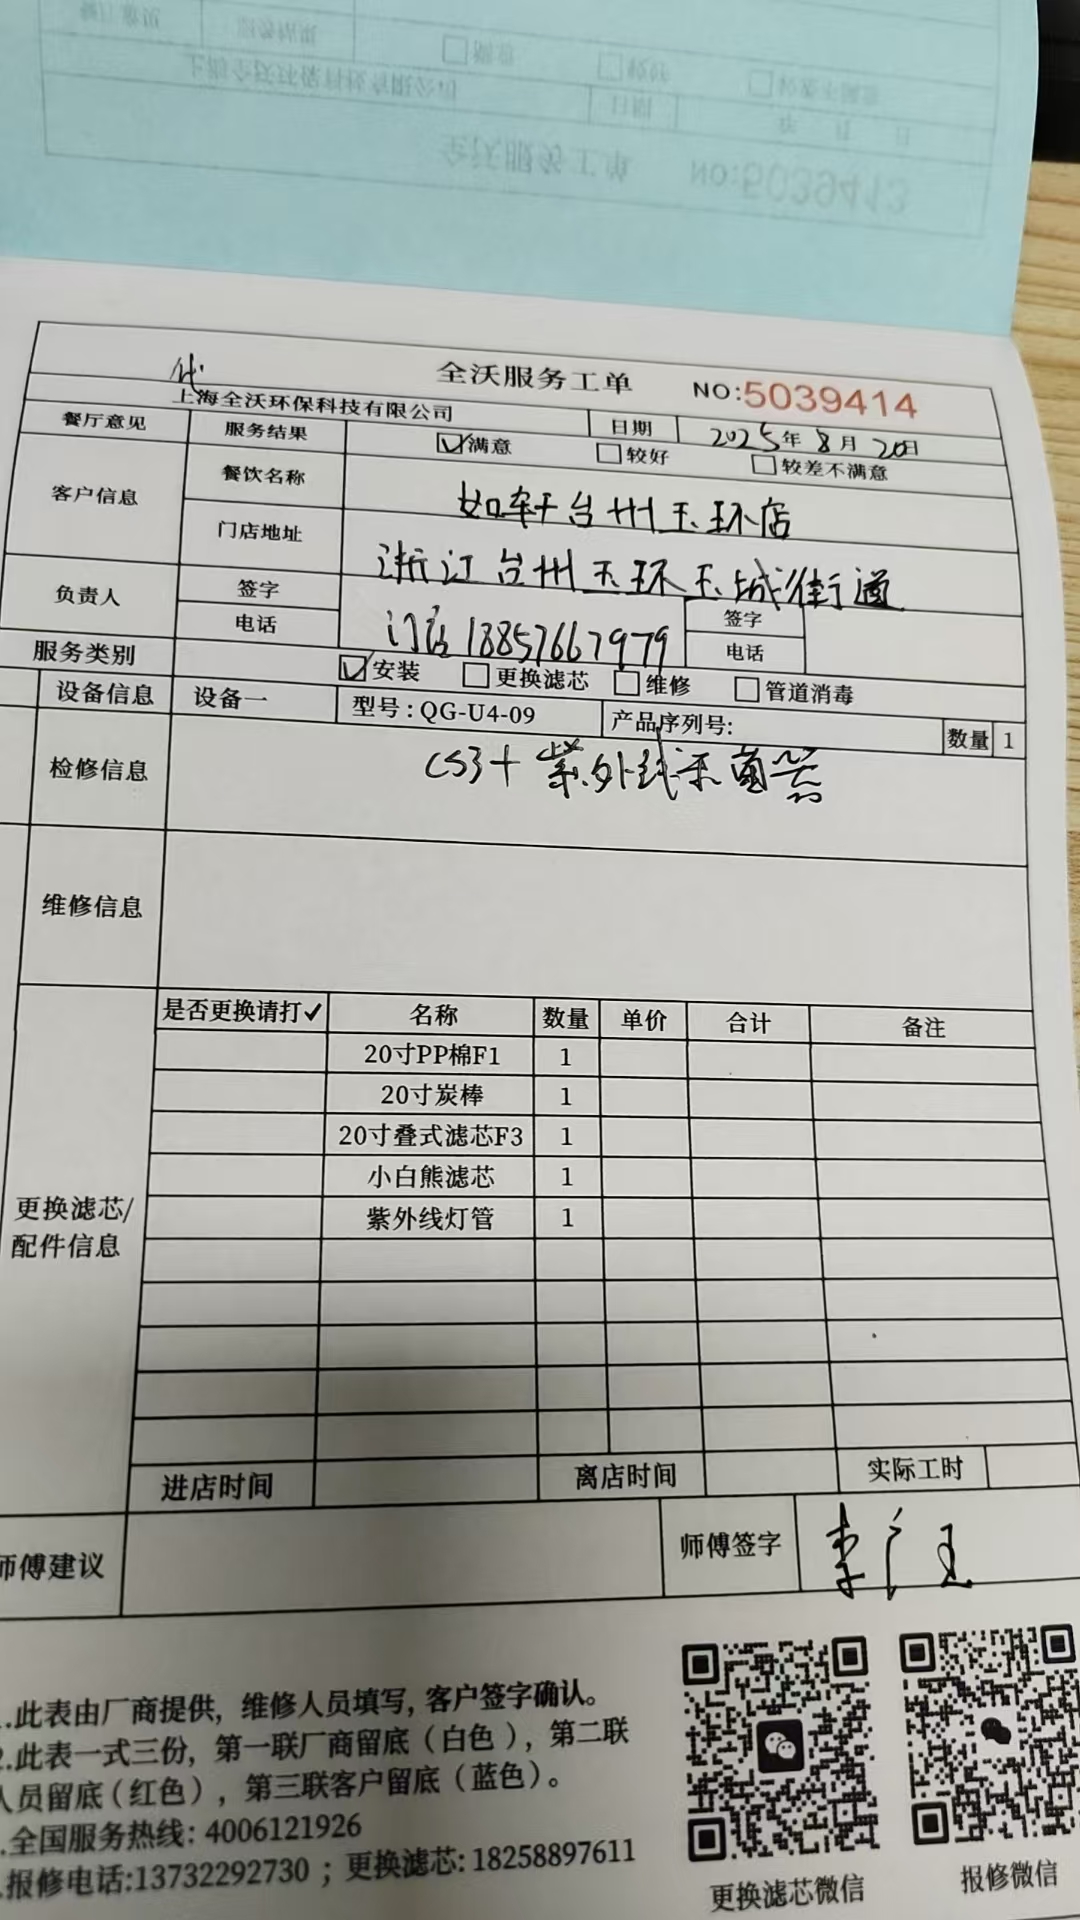 全沃服务工单 NO:5039413
代
全沃服务工单 NO:5039414
上海全沃环保科技有限公司 日期 2025年8月20日
餐厅意见 服务结果 ☑满意 □较好 □较差不满意
客户信息 餐饮名称 如轩台州玉环店
门店地址 浙江台州玉环玉城街道
负责人 签字 签字
电话 门店 18857667979 电话
服务类别 ☑安装 □更换滤芯 □维修 □管道消毒
设备信息 设备一 型号:QG-U4-09 产品序列号: 数量 1
检修信息 CS3+紫外线杀菌器
维修信息
是否更换请打✓ 名称 数量 单价 合计 备注
20寸PP棉F1 1
20寸炭棒 1
20寸叠式滤芯F3 1
小白熊滤芯 1
紫外线灯管 1
更换滤芯/
配件信息
进店时间 离店时间 实际工时
师傅建议 师傅签字 李广
.此表由厂商提供，维修人员填写，客户签字确认。
2.此表一式三份，第一联厂商留底（白色），第二联
人员留底（红色），第三联客户留底（蓝色）。
.全国服务热线: 4006121926
.报修电话:13732292730 ；更换滤芯: 18258897611
更换滤芯微信 报修微信